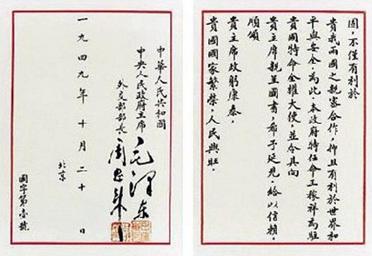 固，不僅有利於
貴我兩國之親密合作，抑且有利於世界和
平與安全。為此，本政府特任命王稼祥為駐
貴國特命全權大使，並令其向
貴主席親呈國書，希予延見，給以信賴。
順頌
貴主席政躬康泰，
貴國國家繁榮，人民興旺。
中華人民共和國
中央人民政府主席
毛澤東
外交部部長
周恩來
一九四九年十月二十日
北京
國字第壹號